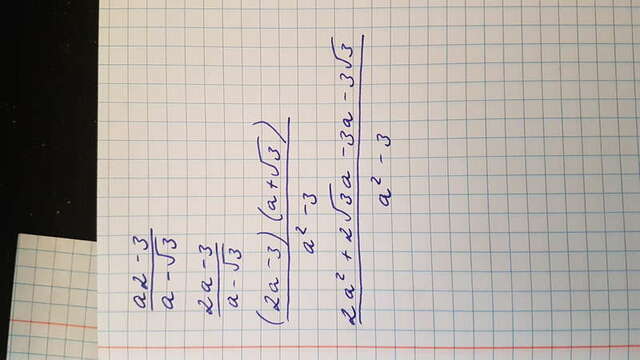 a2-3/a-√3
2a-3/a-√3
(2a-3)(a+√3)/a²-3
2a²+2√3a-3a-3√3/a²-3